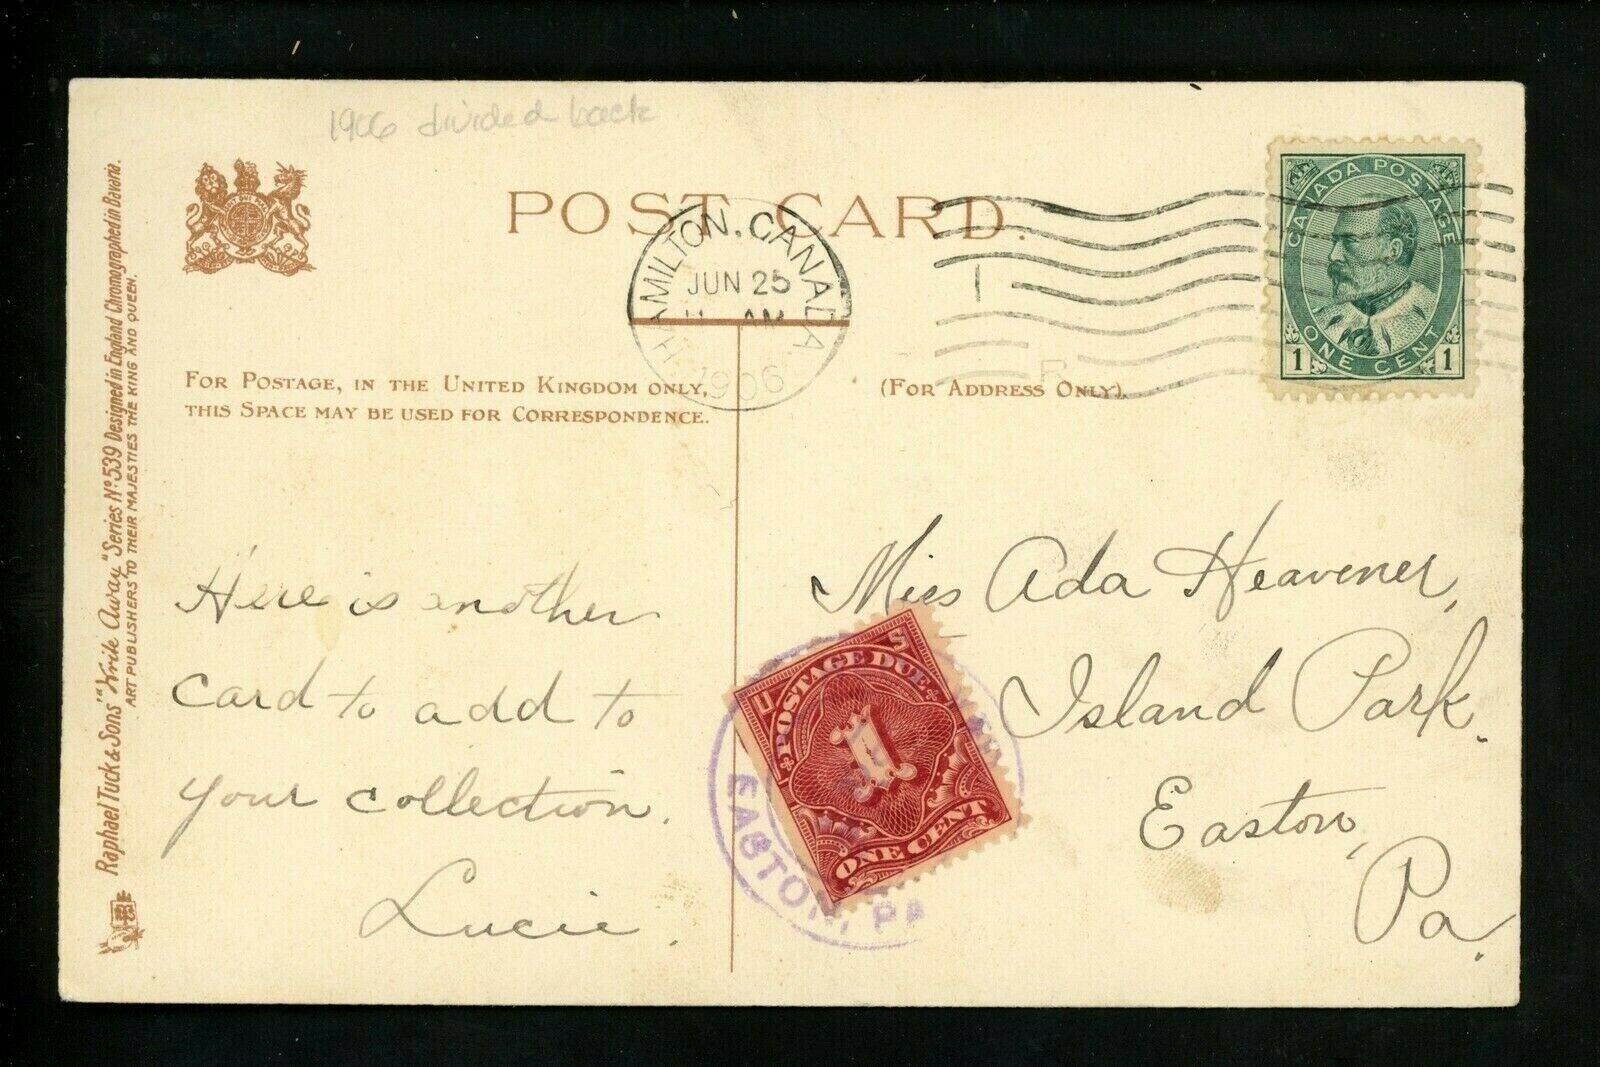 1906 divided back
POST CARD.
HAMILTON, CANADA
JUN 25
AM
1906
CANADA POSTAGE
1 ONE CENT 1
FOR POSTAGE, IN THE UNITED KINGDOM ONLY,
THIS SPACE MAY BE USED FOR CORRESPONDENCE.
(FOR ADDRESS ONLY).
Here is another
card to add to
your collection.
Lucie.
Miss Ada Heavener,
Island Park.
Easton,
Pa.
POSTAGE DUE
1
ONE CENT
EASTON, PA
Raphael Tuck & Sons' "Write Away" Series No 539 Designed in England Chromographed in Bavaria.
ART PUBLISHERS TO THEIR MAJESTIES THE KING AND QUEEN.